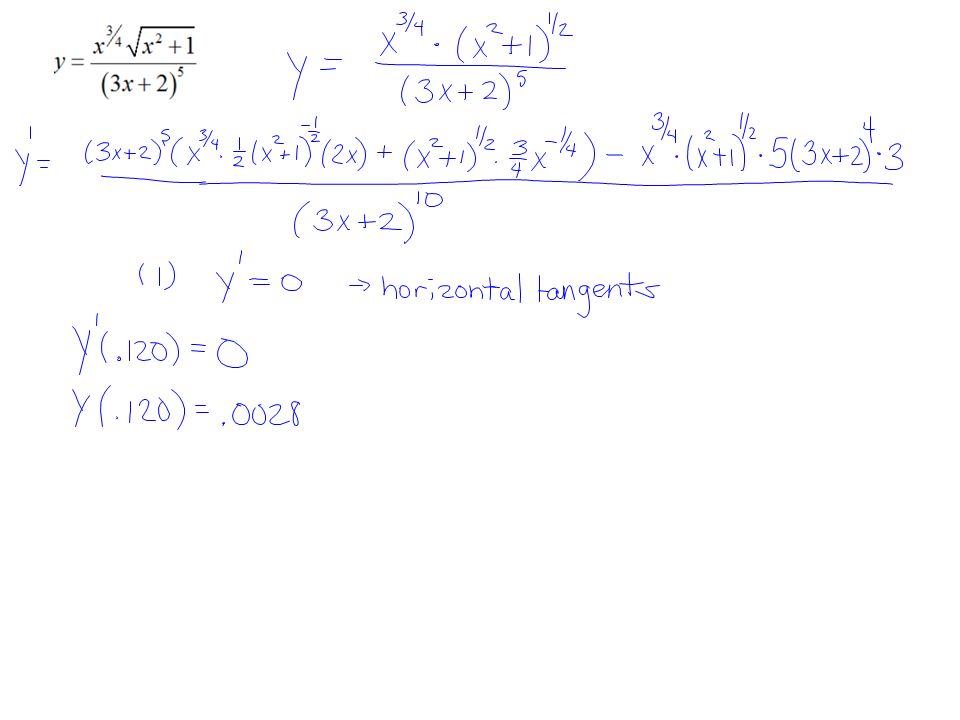 y = x^(3/4) √(x² + 1) / (3x + 2)^5
y = x^(3/4) · (x² + 1)^(1/2) / (3x + 2)^5
y' = [(3x+2)^5 (x^(3/4) · 1/2 (x²+1)^(-1/2) (2x) + (x²+1)^(1/2) · 3/4 x^(-1/4)) − x^(3/4) · (x²+1)^(1/2) · 5(3x+2)^4 · 3] / (3x+2)^10
(1) y' = 0 → horizontal tangents
y'(.120) = 0
y(.120) = .0028